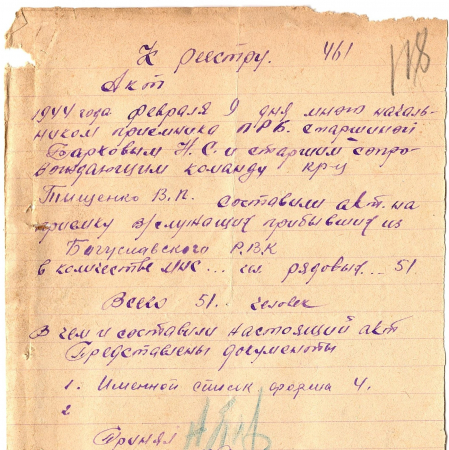 К реестру. 461
118
Акт
1944 года февраля 9 дня мною началь-
ником приемника ПРБ. старшиной
Барковым Н.С. и старшим сопро-
вождающим команду кр-ц
Тищенко В.П. составили акт на
приемку в/служащих прибывших из
Богуславского Р.В.К
в количестве МНС... рядовых... 51
Всего 51.. человек
В чем и составили настоящий акт
Представлены документы
1. Именной список форма 4.
2
Принял